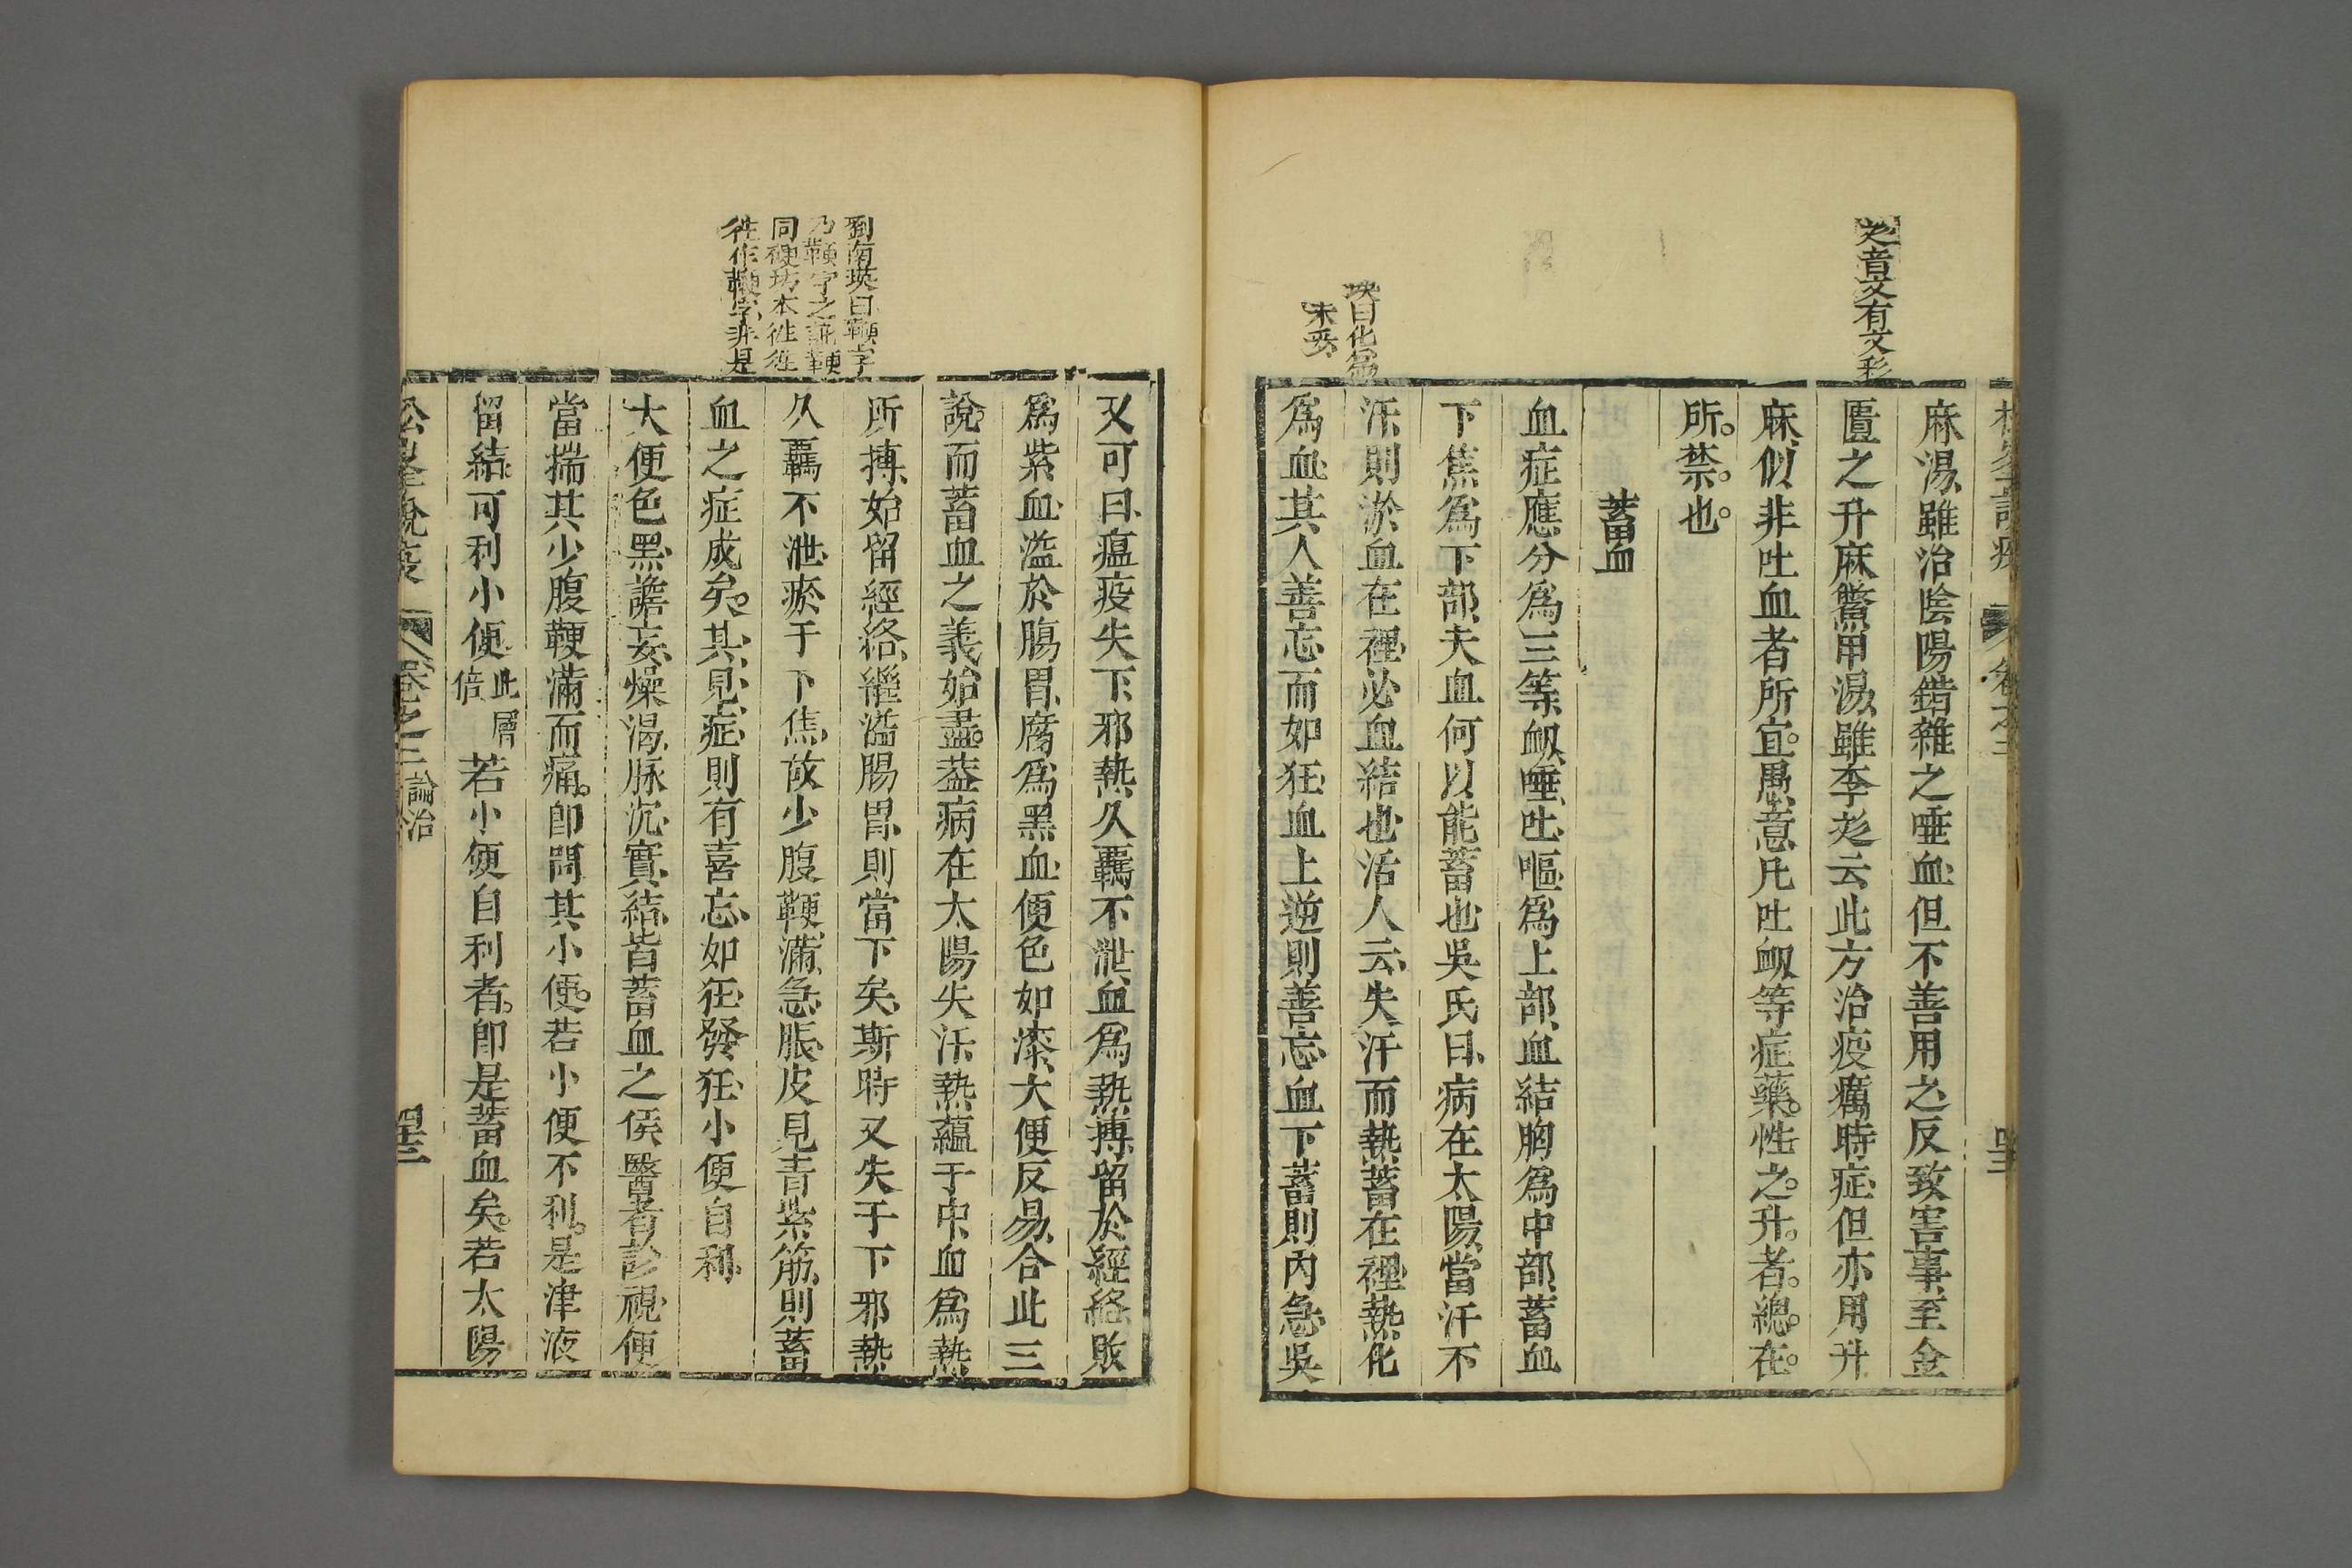 彣音文有文彩
麻湯雖治陰陽錯雜之唾血但不善用之反致害事至金
匱之升麻鱉甲湯雖李彣云此方治疫癘時症但亦用升
麻似非吐血者所宜愚意凡吐衂等症藥性之升者總在
所禁也
蓄血
血症應分爲三等衂唾吐嘔爲上部血結胸爲中部蓄血
下焦爲下部夫血何以能蓄也吳氏曰病在太陽當汗不
汗則淤血在裡必血結也活人云失汗而熱蓄在裡熱化
爲血其人善忘而如狂血上逆則善忘血下蓄則內急吳
瑛曰化爲
未妥
又可曰瘟疫失下邪熱久羈不泄血爲熱搏留於經絡敗
爲紫血溢於腸胃腐爲黑血便色如漆大便反易合此三
說而蓄血之義始盡葢病在太陽失汗熱蘊于中血爲熱
所搏始留經絡繼溢腸胃則當下矣斯時又失于下邪熱
久羈不泄瘀于下焦故少腹鞕滿急脹皮見青紫筋則蓄
血之症成矣其見症則有喜忘如狂發狂小便自利
大便色黑譫妄燥渴脉沉實結皆蓄血之候醫者診視便
當揣其少腹鞕滿而痛卽問其小便若小便不利是津液
留結可利小便此層倍若小便自利者卽是蓄血矣若太陽
劉南瑛曰䩕字
乃䩕字之訛鞕
同硬坊本往往
往作鞕字非是
松峯說疫 卷之二 論治 四十三